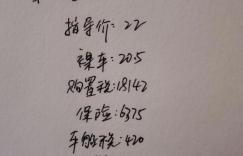 指导价:22
裸车:20.5
购置税:18142
保险:6375
车船税:420